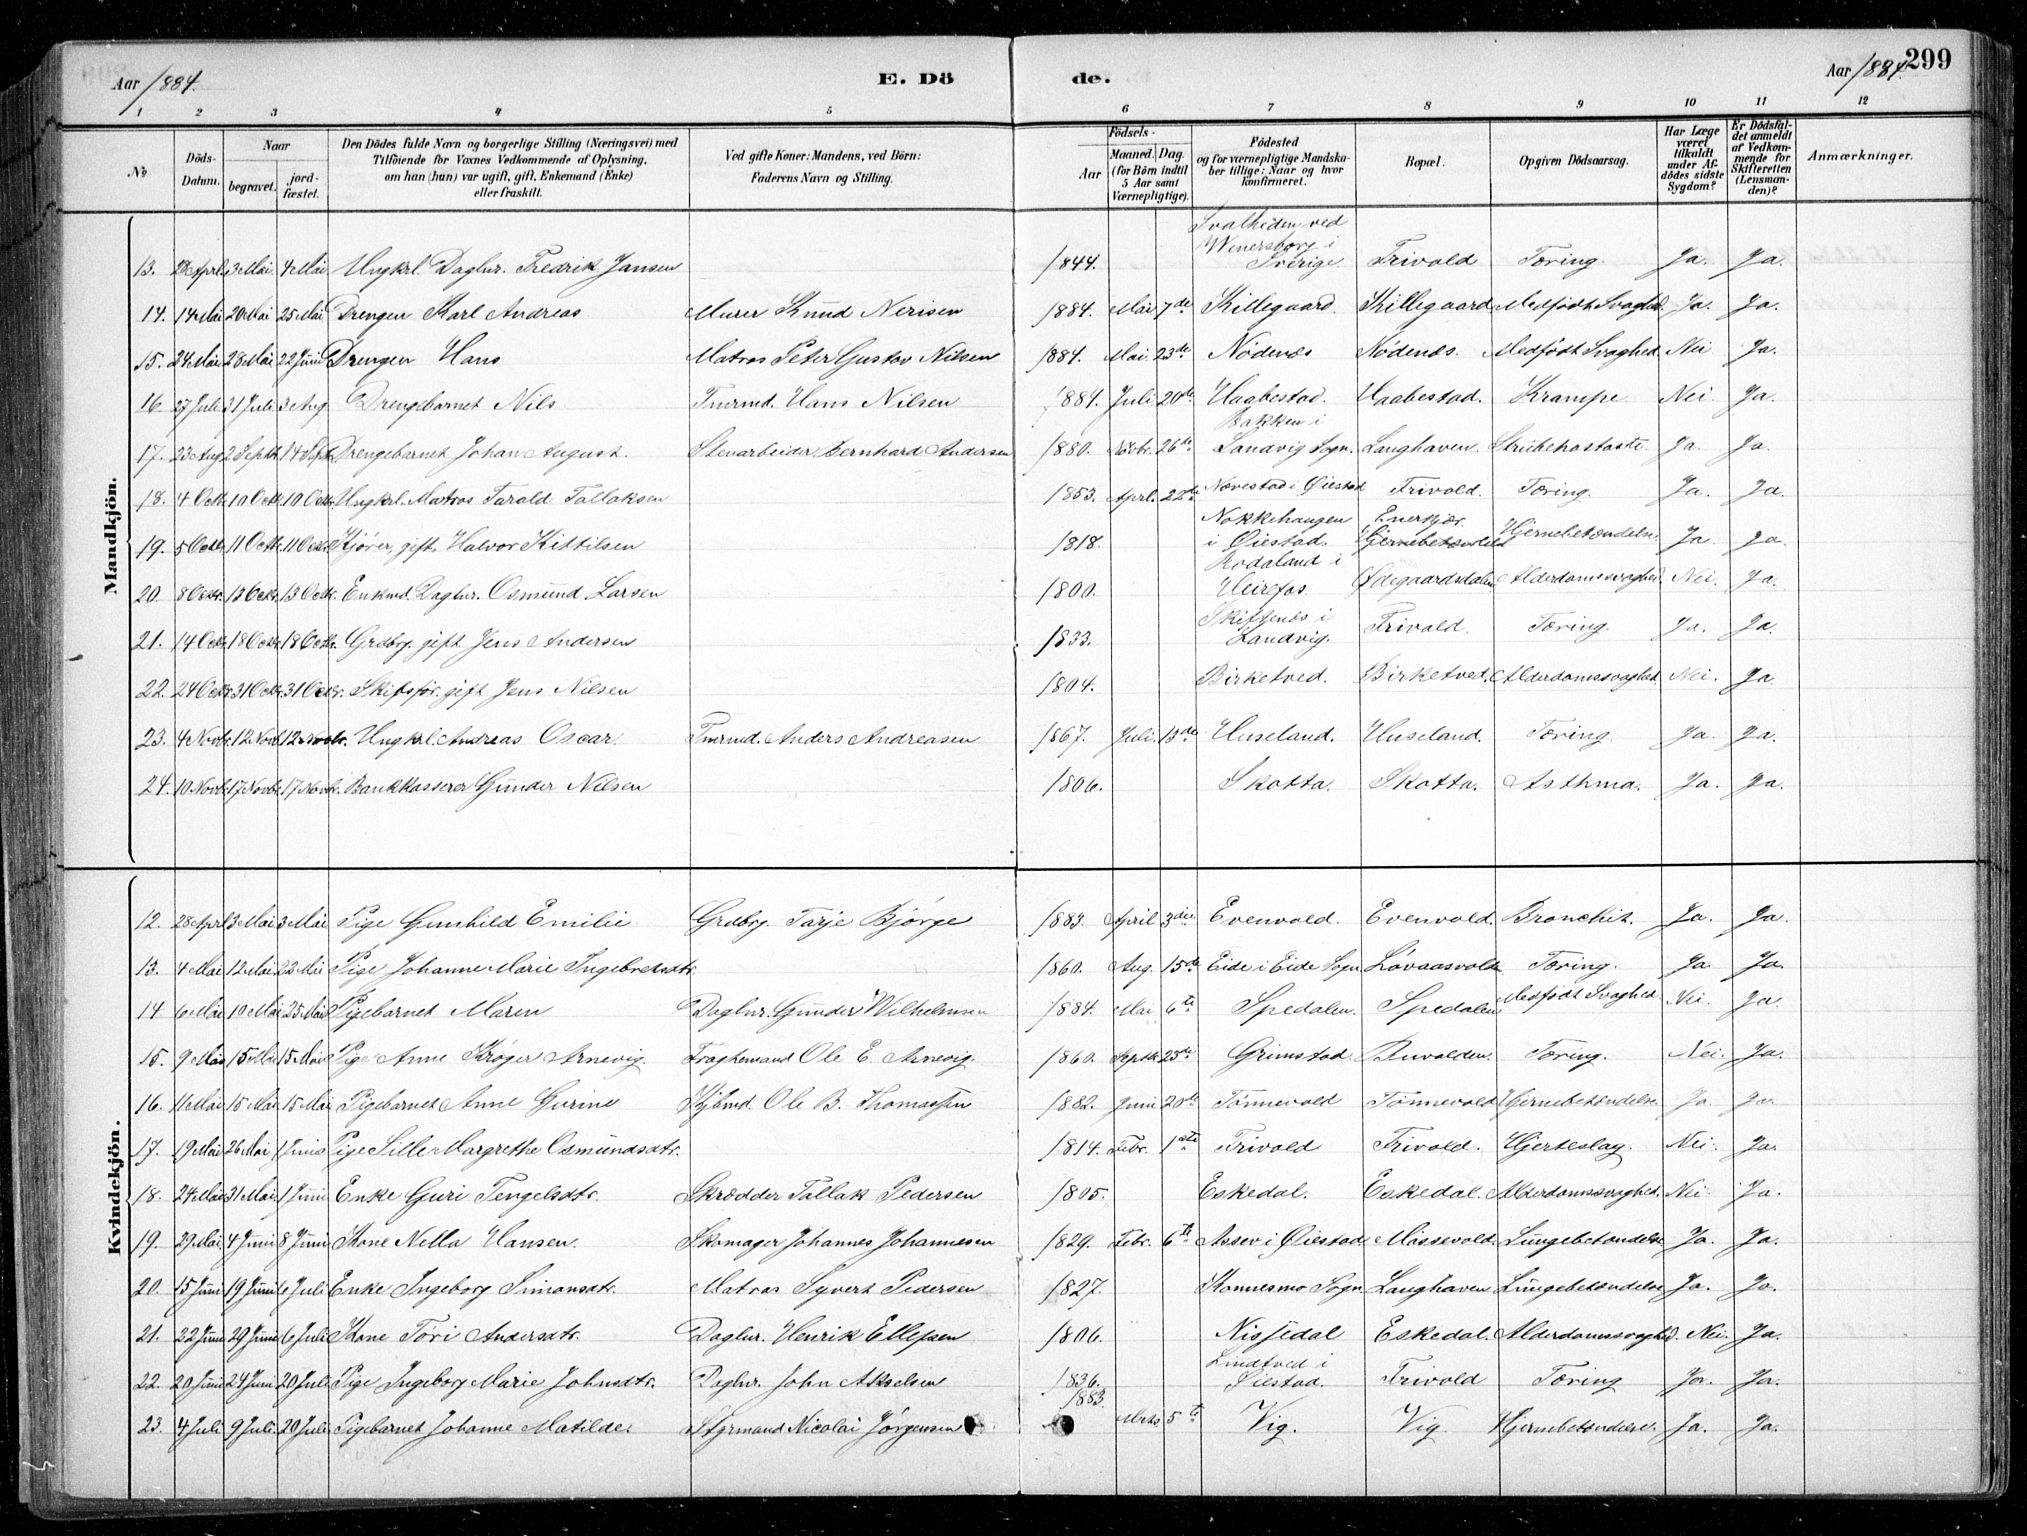 Aar 1884. E. Dö de. Aar 1884. 299
1 2 3 4 5 6 7 8 9 10 11 12
No
Döds-Datum.
Naar
begravet.
jordfæstet.
Den Dödes fulde Navn og borgerlige Stilling (Næringsvei) med
Tilföiende for Voxnes Vedkommende af Oplysning,
om han (hun) var ugift, gift, Enkemand (Enke)
eller fraskilt.
Ved gifte Koner: Mandens, ved Börn:
Faderens Navn og Stilling.
Födsels-
Aar
Maaned. Dag.
(for Börn indtil
5 Aar samt
Værnepligtige).
Födested
og for værnepligtige Mandskaber tillige: Naar og hvor
konfirmeret.
Bopæl.
Opgiven Dödsaarsag.
Har Læge
været
tilkaldt
under Afdödes sidste
Sygdom?
Er Dödsfaldet anmeldt
af Vedkommende for
Skifteretten
(Lensmanden)?
Anmærkninger.
Mandkjön.
13. 28 Apri. 3 Mai 4 Mai Ungkrl. Daglnr. Fredrik Jansen 1844. Svalheden ved Wenersborg i Sverige. Frivold Tæring. Ja. Ja.
14. 14 Mai 20 Mai 25 Mai Drengen Karl Andreas Murer Knud Nerisen 1884. Mai 7de Killegaard. Killegaard. Medfødt Svaghed. Ja. Ja.
15. 24 Mai 28 Mai 22 Juni Drengen Hans Matros Peter Gustav Nilsen 1884. Mai 23de Nødenæs Nødenæs. Medfødt Svaghed. Nei Ja.
16 27 Juli 31 Juli 3 Aug Drengebarnet Nils Tmrmd. Hans Nilsen 1884. Juli 20de Haabestad. Haabestad. Krampe. Nei. Ja.
17. 23 Aug 2 Septb. 14 Sept. Drengebarnet Johan August. Stenarbeider Bernhard Andersen 1880. Novbr. 26de Bakken i Landvig Sogn. Langhaven. Strubehoste Ja. Ja.
18. 4 Octb. 10 Octb. 10 Octb. Ungkrl. Matros Tarald Tallaksen 1853. Aprl. 22de Nævestad i Øiestad Frivold. Tæring. Ja. Ja.
19. 5 Octb. 11 Octb. 11 Octb. Kjører, gift, Halvor Kittilsen 1818. Nokkehaugen i Øiestad. Enerkjær. Hjernebetændelse. Ja. Ja.
20. 8 Octb. 13 Octb. 13 Octb. Enkmd. Daglnr. Osmund Larsen 1800. Rodaland i Heirefos. Ødegaardsdalen Alderdomssvaghed. Nei. Ja.
21. 14 Octb. 18 Octb. 18 Octb. Grdbrg. gift Jens Andersen 1833. Skiftenæs i Landvig. Frivold. Tæring. Ja. Ja.
22. 24 Octb. 31 Octb. 31 Octb. Skibsfør. gift Jens Nilsen 1804. Birketved. Birketved. Alderdomssvaghed. Nei. Ja.
23. 4 Novb. 12 Novb. 12 Novbr. Ungkrl. Andreas Oscar. Tmrmd. Anders Andreasen 1867. Juli 13de Huseland. Huseland. Tæring. Ja. Ja.
24. 10 Novb. 17 Novb. 17 Novb. Bankkasserer Gunder Nilsen 1806. Skotta. Skotta. Asthma. Ja. Ja.
Kvindekjön.
12. 28 Aprl 3 Mai 3 Mai Pige Gunhild Emilie Grdbrg. Tarje Bjørge 1883. April 3die Evenvold. Evenvold. Bronchit. Ja. Ja.
13. 4 Mai 12 Mai 22 Mai Pige Johanne Marie Ingebretsdtr. 1860. Aug. 15de Eide i Eide Sogn Løvaasvolde Tæring. Ja Ja.
14 6 Mai 10 Mai 25 Mai Pigebarnet Maren Daglnr. Gunder Wilhelmsen 1884. Mai 6te Spedalen. Spedalen Medfødt Svaghed. Nei. Ja
15. 9 Mai 15 Mai 15 Mai Pige Anne Krøger Arnevig. Fraghemand Ole E. Arnevig 1860. Septb. 23de Grimstad Tæring. Nei. Ja.
16. 11 Mai 15 Mai 15 Mai Pigebarnet Anne Gurine Kjbmd. Ole B. Thomassen 1882. Juni 20de Tønnevold Tønnevold Hjernebetændelse Ja. Ja.
17. 19 Mai 26 Mai 1 Juni Pige Sille Margrethe Osmundsdtr. 1814. Febr. 1ste Frivold Frivold. Hjerteslag. Nei. Ja.
18. 24 Mai 31 Mai 1 Juni Enke Guri Tengelsdtr. Skrædder Tallak Pedersen 1805. Eskedal. Eskedal. Alderdomssvaghed. Nei Ja.
19. 29 Mai 4 Juni 8 Juni Kone Nella Hansen. Skomager Johannes Johannesen 1829. Febr. 6te Assev i Øiestad Mossevold. Lungebetændelse Ja. Ja.
20. 15 Juni 19 Juni 6 Juli Enke Ingeborg Simonsdtr. Matros Syvert Pedersen 1827. Konnesmo Sogn. Langhaven Lungebetændelse Ja. Ja.
21. 22 Juni 29 Juni 6 Juli Kone Tori Andersdtr. Daglnr. Henrik Ellefsen 1806. Nissedal Eskedal. Alderdomssvaghed. Nei. Ja.
22. 20 Juni 24 Juni 20 Juli Pige Ingeborg Marie Johnsdtr. Daglnr. John Akselsen 1836. Lindtved i Øiestad. Frivold Tæring Ja. Ja.
23. 4 Juli 9 Juli. 20 Juli Pigebarnet Johanne Matilde. Styrmand Nicolai Jørgensen 1883. Mrts 5te Vig. Vig. Hjernebetændelse. Ja. Ja.